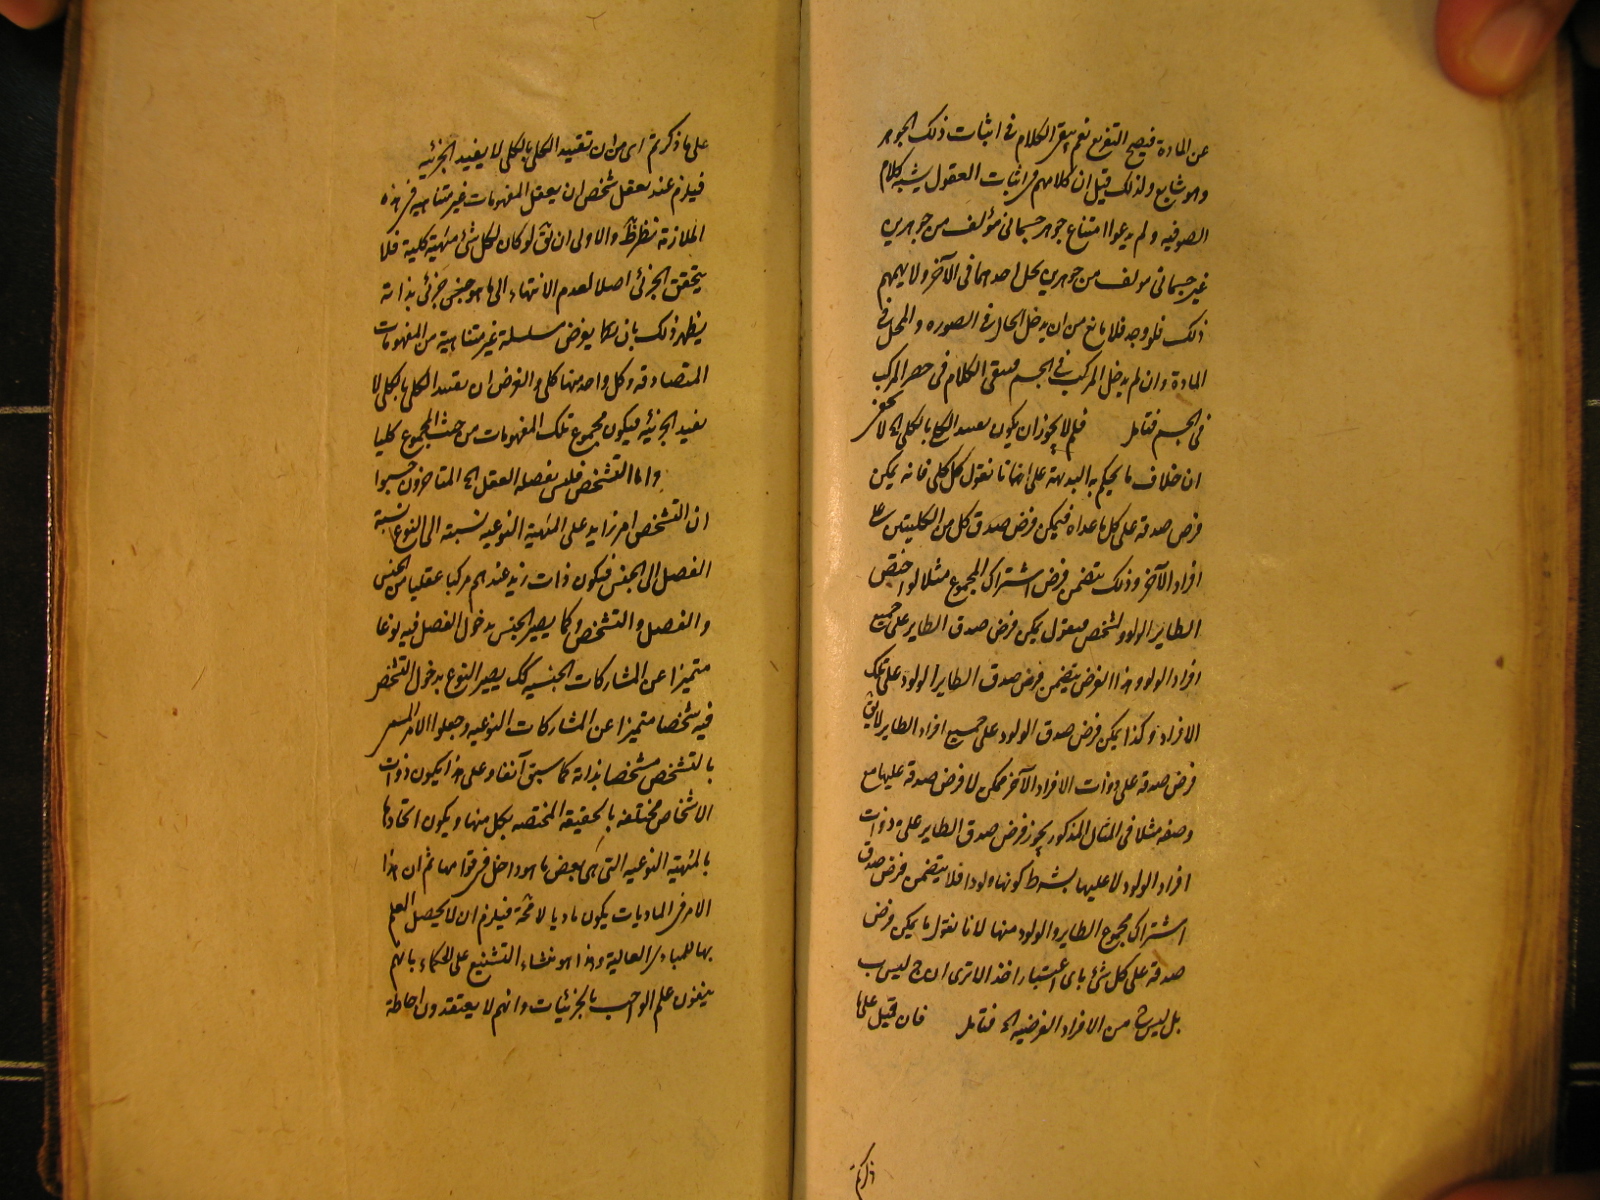 عن المادة فيصح التفريع نعم يبقى الكلام فى اثبات ذلك الجوهر
وهو شايع ولذلك قيل ان كلامهم فى اثبات العقول يشبه كلام
الصوفيه ولم يدعوا امتناع جوهر جسمانى مؤلف من جوهرين
غير جسمانى مولف من جوهرين يحل احدهما فى الآخر ولا يهمهم
ذلك فلو وجد فلا مانع من ان يدخل الحال فى الصوره والمحل فى
المادة وان لم يدخل المركب فى الجسم فيبقى الكلام فى حصر المركب
فى الجسم فتامل فلم لا يجوز ان يكون تقييد الكلى بالكلى الخ لا يخفى
ان خلاف ما يحكم به البديهة على انا نقول كل كلى فانه يمكن
فرض صدقه على كل ما عداه فيمكن فرض صدق كل من الكليتين على
افراد الآخر وذلك يتضمن فرض اشتراك المجموع مثلا لو اختص
الطاير الولود بشخص فنقول يمكن فرض صدق الطاير على جميع
افراد الولود وهذا الفرض يتضمن فرض صدق الطاير الولود على تلك
الافراد وكذا يمكن فرض صدق الولود على جميع افراد الطاير لا يق
فرض صدقه على ذوات الافراد الآخر ممكن لا فرض صدقه عليها مع
وصفه مثلا فى المثال المذكور يجوز فرض صدق الطاير على ذوات
افراد الولود لا عليها بشرط كونها ولودا فلا يتضمن فرض صدق
اشتراك مجموع الطاير والولود منها لانا نقول ما يمكن فرض
صدقه على كل شئ باى اعتبار اخذ الا ترى ان ج ليس ب
بل ليس من الافراد الفرضيه الخ فتامل فان قيل على ما
ذكرتم
على ما ذكرتم اى من ان تقييد الكلى بالكلى لا يفيد الجزئيه
فيلزم عند تعقل شخص ان يعقل المفهومات غير متناهيه فى هذه
الملازمة نظر ظ والاولى ان يق لو كان لكل شئ مهية كلية فلا
يتحقق الجزئى اصلا لعدم الانتهاء الى ما هو جزئى بذاته
يظهر ذلك بان يفرض سلسلة غير متناهية من المفهومات
المتصادقه وكل واحد منها كلى والفرض ان تقييد الكلى بالكلى لا
يفيد الجزئيه فيكون مجموع تلك المفهومات من حيث المجموع كليا
واما التشخص فليس يفصله العقل الخ المتاخرون حسبوا
ان التشخص امر زايد على المهية النوعيه نسبته الى النوع نسبة
الفصل الى الجنس فيكون ذات زيد عندهم مركبا عقليا من الجنس
والفصل والتشخص وكما يصير الجنس بدخول الفصل فيه نوعا
متميزا عن المشاركات الجنسيه كك يصير النوع بدخول التشخص
فيه شخصا متميزا عن المشاركات النوعيه وجعلوا الامر المسمى
بالتشخص مشخصا بذاته كما سبق آنفا وعلى هذا يكون ذوات
الاشخاص مختلفه بالحقيقه المختصه بكل منها ويكون اتحادها
بالمهية النوعيه التى هى بعض ما هو داخل فى قوامها ثم ان هذا
الامر فى الماديات يكون ماديا لا محة فيلزم ان لا يحصل العلم
بها للمبادى العالية وهذا هو منشاء التشنيع على الحكماء بانهم
ينفون علم الواجب بالجزئيات وانهم لا يعتقدون احاطة